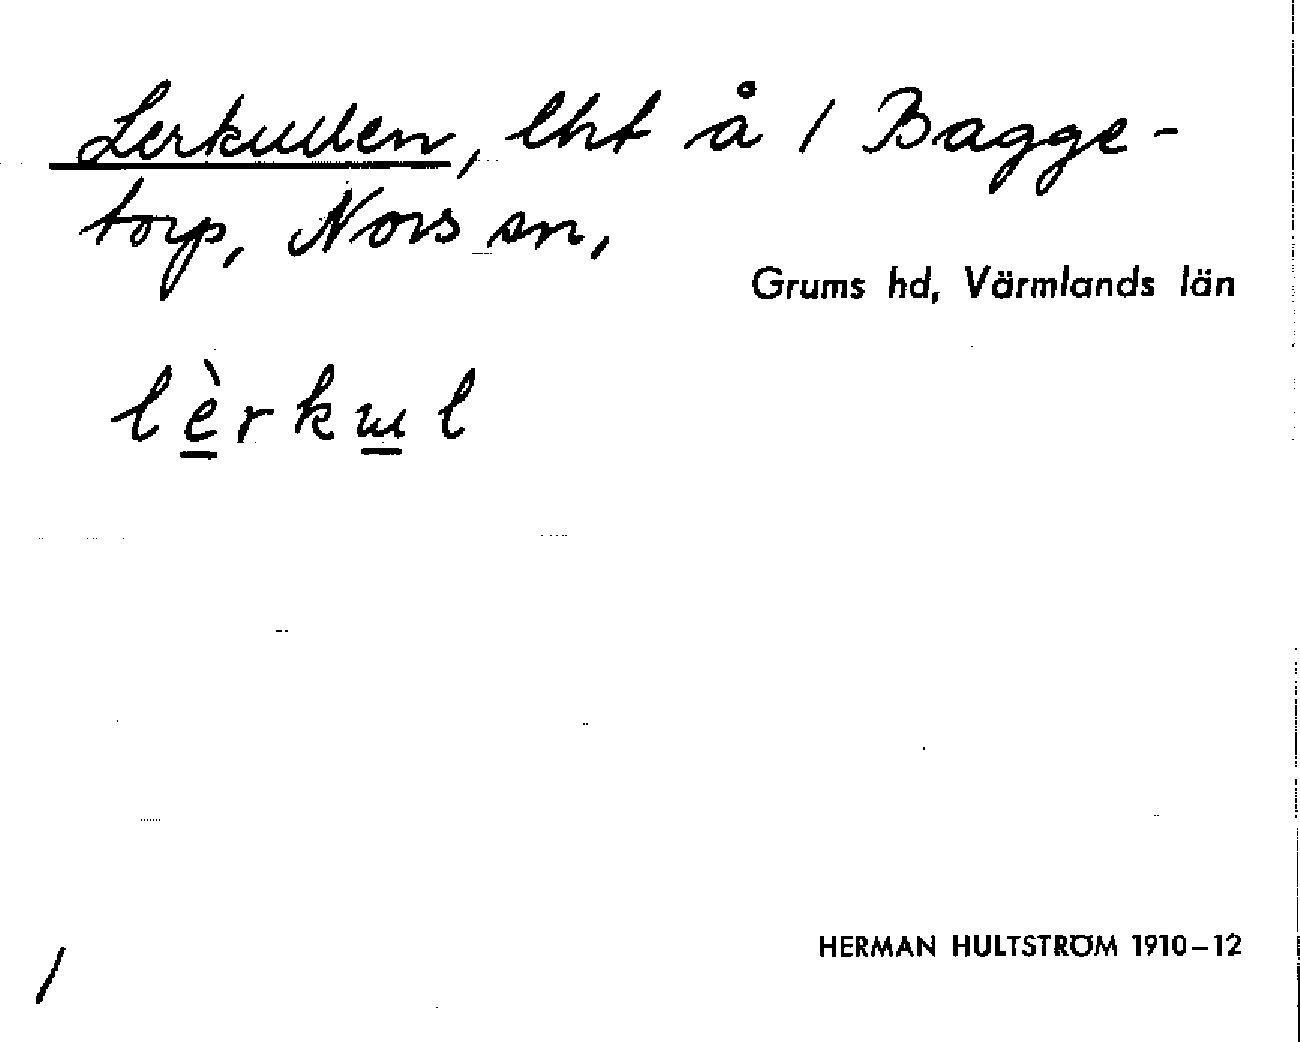 Lerkullen, lht å 1 Bagge-
torp, Nors sn,
Grums hd, Värmlands län
lèrkɯl
HERMAN HULTSTRÖM 1910-12
/